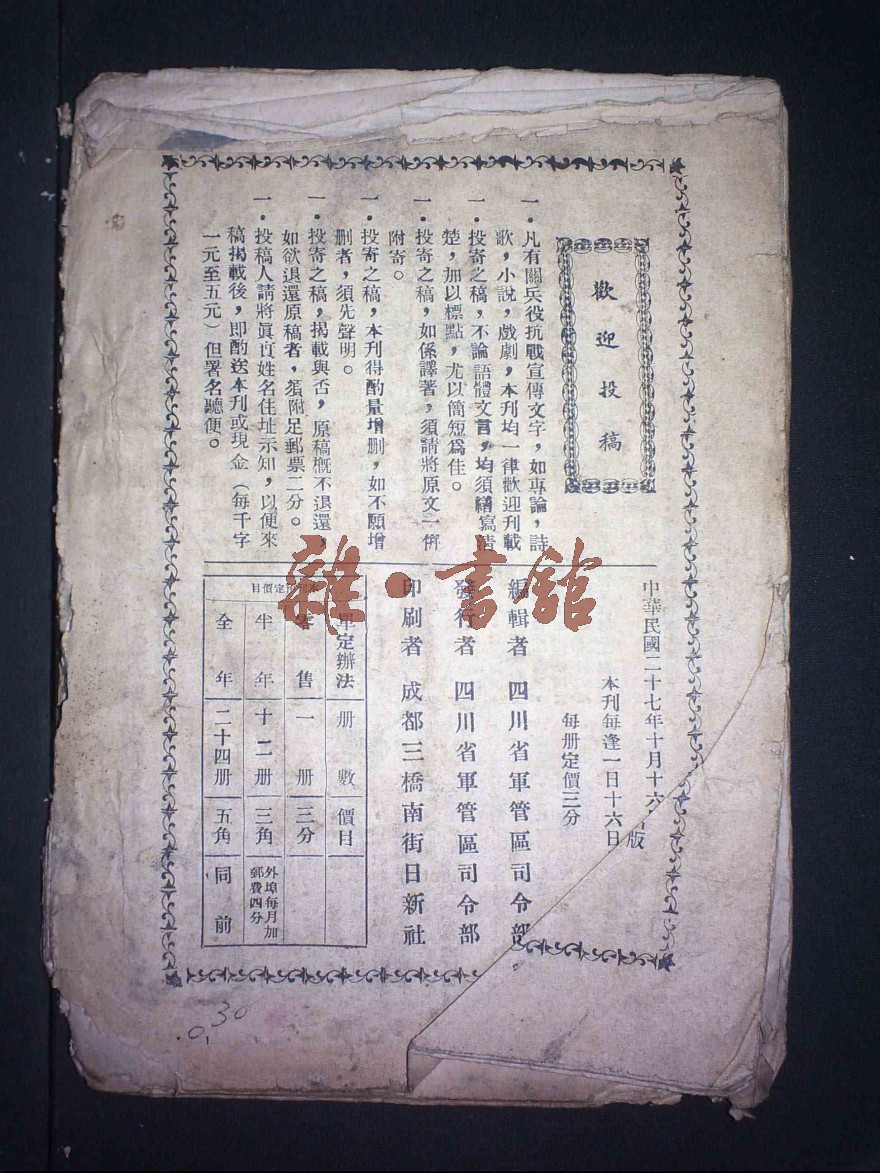 歡迎投稿
一．凡有關兵役抗戰宣傳文字，如專論，詩
歌，小說，戲劇，本刊均一律歡迎刊載
一．投寄之稿，不論語體文言，均須繕寫清
楚，加以標點，尤以簡短爲佳。
一．投寄之稿，如係譯著，須請將原文一倂
附寄。
一．投寄之稿，本刊得酌量增刪，如不願增
刪者，須先聲明。
一．投寄之稿，揭載與否，原稿槪不退還，
如欲退還原稿者，須附足郵票二分。
一．投稿人請將眞實姓名住址示知，以便來
稿揭載後，即酌送本刊或現金（每千字
一元至五元）但署名聽便。
中華民國二十七年十月十六
版
本刊每逢一日十六日
每册定價三分
編輯者 四川省軍管區司令部
發行者 四川省軍管區司令部
印刷者 成都三橋南街日新社
定價目
單定辦法 册數 價目
零售 一册 三分
半年 十二册 三角 外埠每月加郵費四分
全年 二十四册 五角 同前
雜·書館
0.30